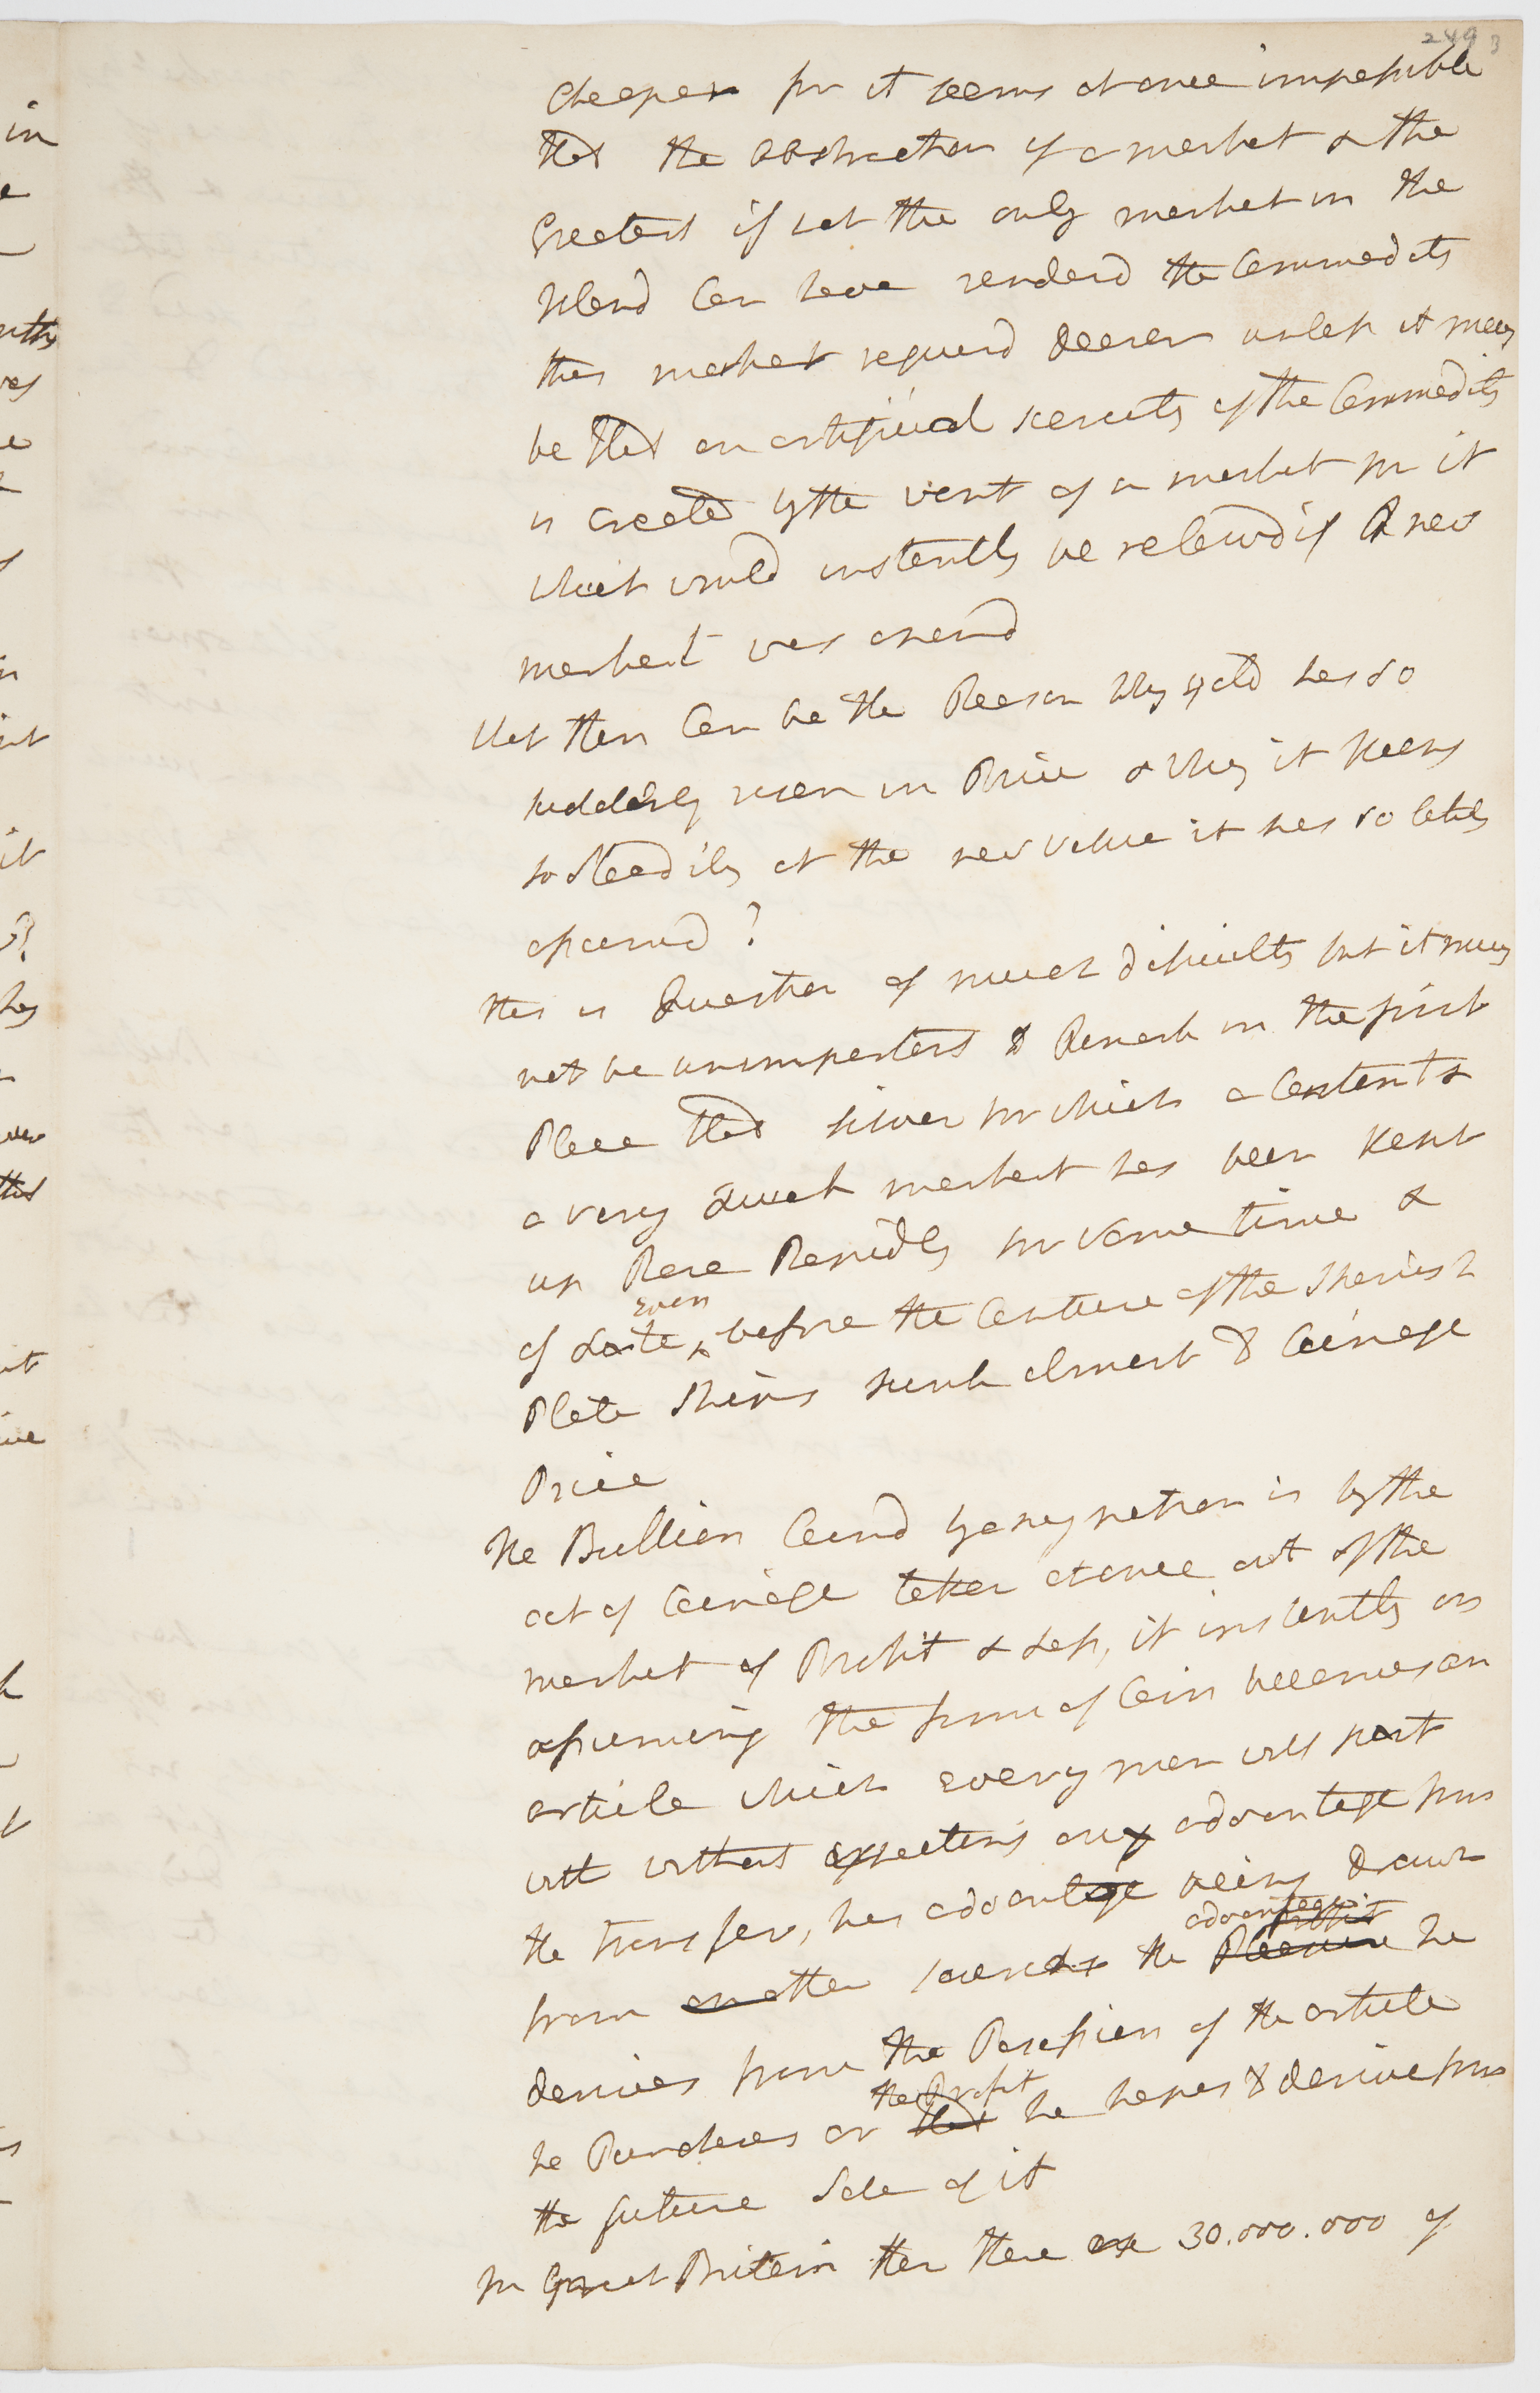 2493
Cheaper for it seems at once impossible
that the abstraction of a market & the
Greatest if not the only market in the
Island Can have renderd the Commodity
this market requird dearer unless it may
be that an artificial scarcity of the Commodity
is created by the want of a market for it
which would instantly be relievd if a new
market was opend
What then Can be the Reason Why gold has so
suddenly risen in Price & Why it keeps
so steadily at the new value it has so lately
assumd ?
this is Question of much dificulty but it may
not be unimportant to Remark in the first
Place that silver for which a Constant &
a very quick market has been kept
up Rose Rapidly for some time &
of Late even before the Capture of the Spanish
Plate Ships sunk almost to Coinage
Price
The Bullion Coind by any nation is by the
act of Coinage taken at once out of the
market of Profit & Loss, it instantly on
assuming the form of Coin becomes an
article which every man will part
with without expecting any advantage from
the transfer, his advantage being drawn
from another source the advantage he
derives from the Possession of the article
he Purchases or the Profit he hopes to derive from
the future Sale of it
In Great Britain then there are 30.000.000 of